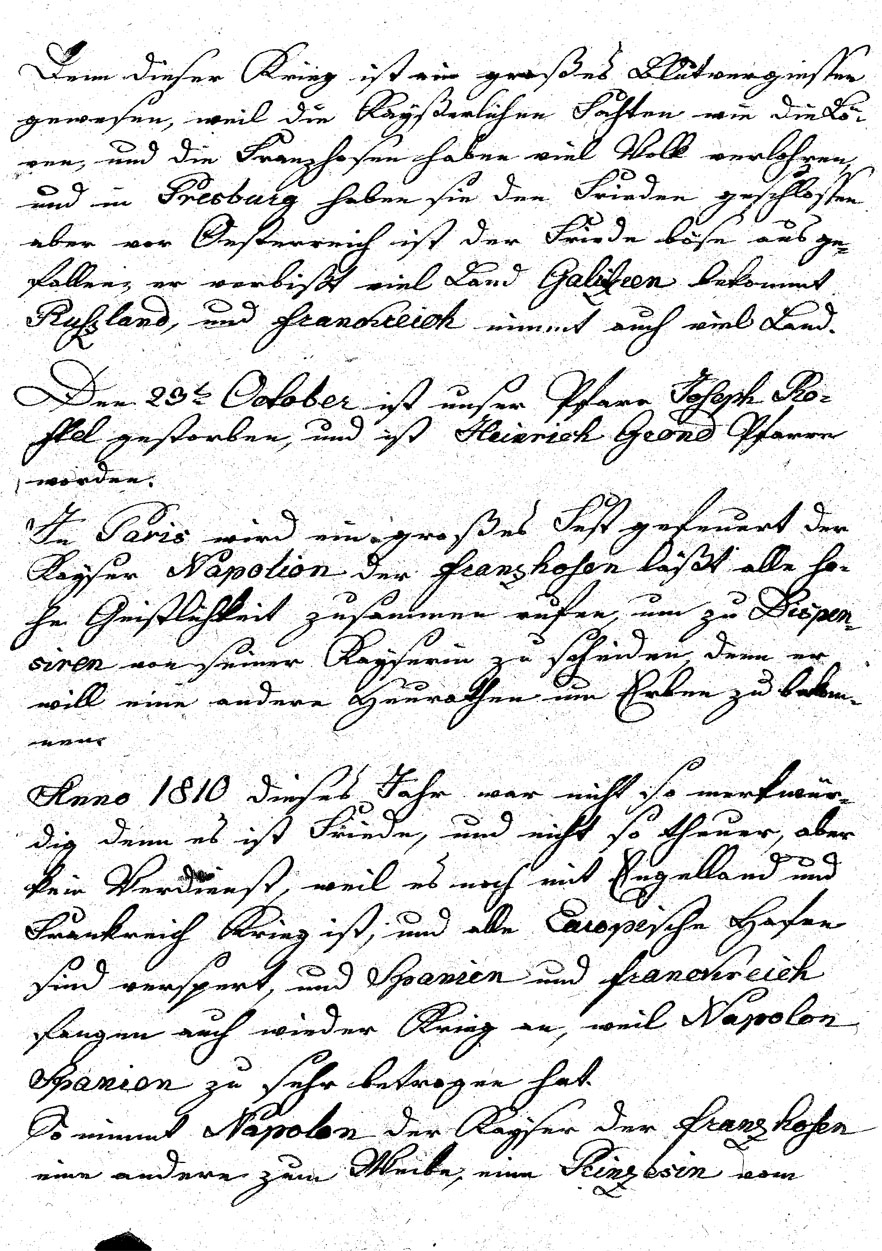 Denn dieser Krieg ist ein großes Blutvergiessen
gewesen, weil die Kayßerlichen Fahten wie die Lö-
ven, und die Franzhosen haben viel Volk verlohren,
und in Presburg haben sie den Frieden geschlossen
aber vor Oesterreich ist der Friede böse ausge-
fallen, er verbißt viel Land Galizien bekommt
Rußland, und franckreich nimmt auch viel Land.
Den 23t October ist unser Pfarr Joseph Ro-
gestorben, und ist Heinrich Grond Pfarre
worden.
In Paris wird ein großes Fest gefeuert der
Kayser Napolion der franzhosen läßt alle ho-
he Geistlichkeit zusammen rufen, um zu Dispen-
siren von seiner Kayserin zu scheiden, denn er
will eine andere Heurathen um Erben zu bekom-
men.
Anno 1810 dieses Jahr war nicht so merkwür-
dig denn es ist Friede, und nicht so theuer, aber
kein Verdienst, weil es noch mit Engelland und
Frankreich Krieg ist, und alle Europische Hafen
sind verspert, und Spanien und franckreich
fangen auch wieder Krieg an, weil Napolon
Spanien zu sehr betrogen hat.
So nimmt Napolon der Kayser der franzhosen
eine andere zum Weibe, eine Prinzesin vom